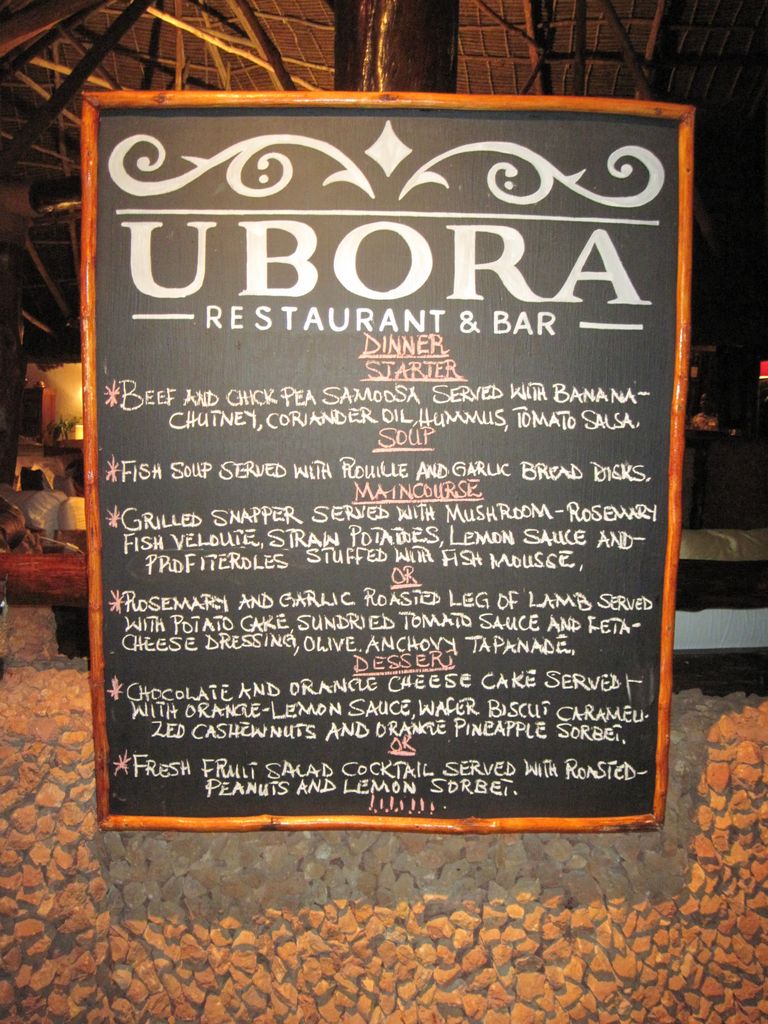 UBORA
RESTAURANT & BAR
DINNER
STARTER
*BEEF AND CHICK PEA SAMOOSA SERVED WITH BANANA-
CHUTNEY, CORIANDER OIL, HUMMUS, TOMATO SALSA.
SOUP
*FISH SOUP SERVED WITH ROUILLE AND GARLIC BREAD DISKS.
MAINCOURSE
*GRILLED SNAPPER SERVED WITH MUSHROOM-ROSEMARY
FISH VELOUTE, STRAW POTATOES, LEMON SAUCE AND-
PROFITEROLES STUFFED WITH FISH MOUSSE.
OR
*ROSEMARY AND GARLIC ROASTED LEG OF LAMB SERVED
WITH POTATO CAKE, SUNDRIED TOMATO SAUCE AND FETA-
CHEESE DRESSING, OLIVE. ANCHOVY TAPANADE.
DESSERT
*CHOCOLATE AND ORANGE CHEESE CAKE SERVED-
WITH ORANGE-LEMON SAUCE, WAFER BISCUIT CARAMELI-
ZED CASHEWNUTS AND ORANGE PINEAPPLE SORBET.
OR
*FRESH FRUIT SALAD COCKTAIL SERVED WITH ROASTED-
PEANUTS AND LEMON SORBET.
!!!!!!!